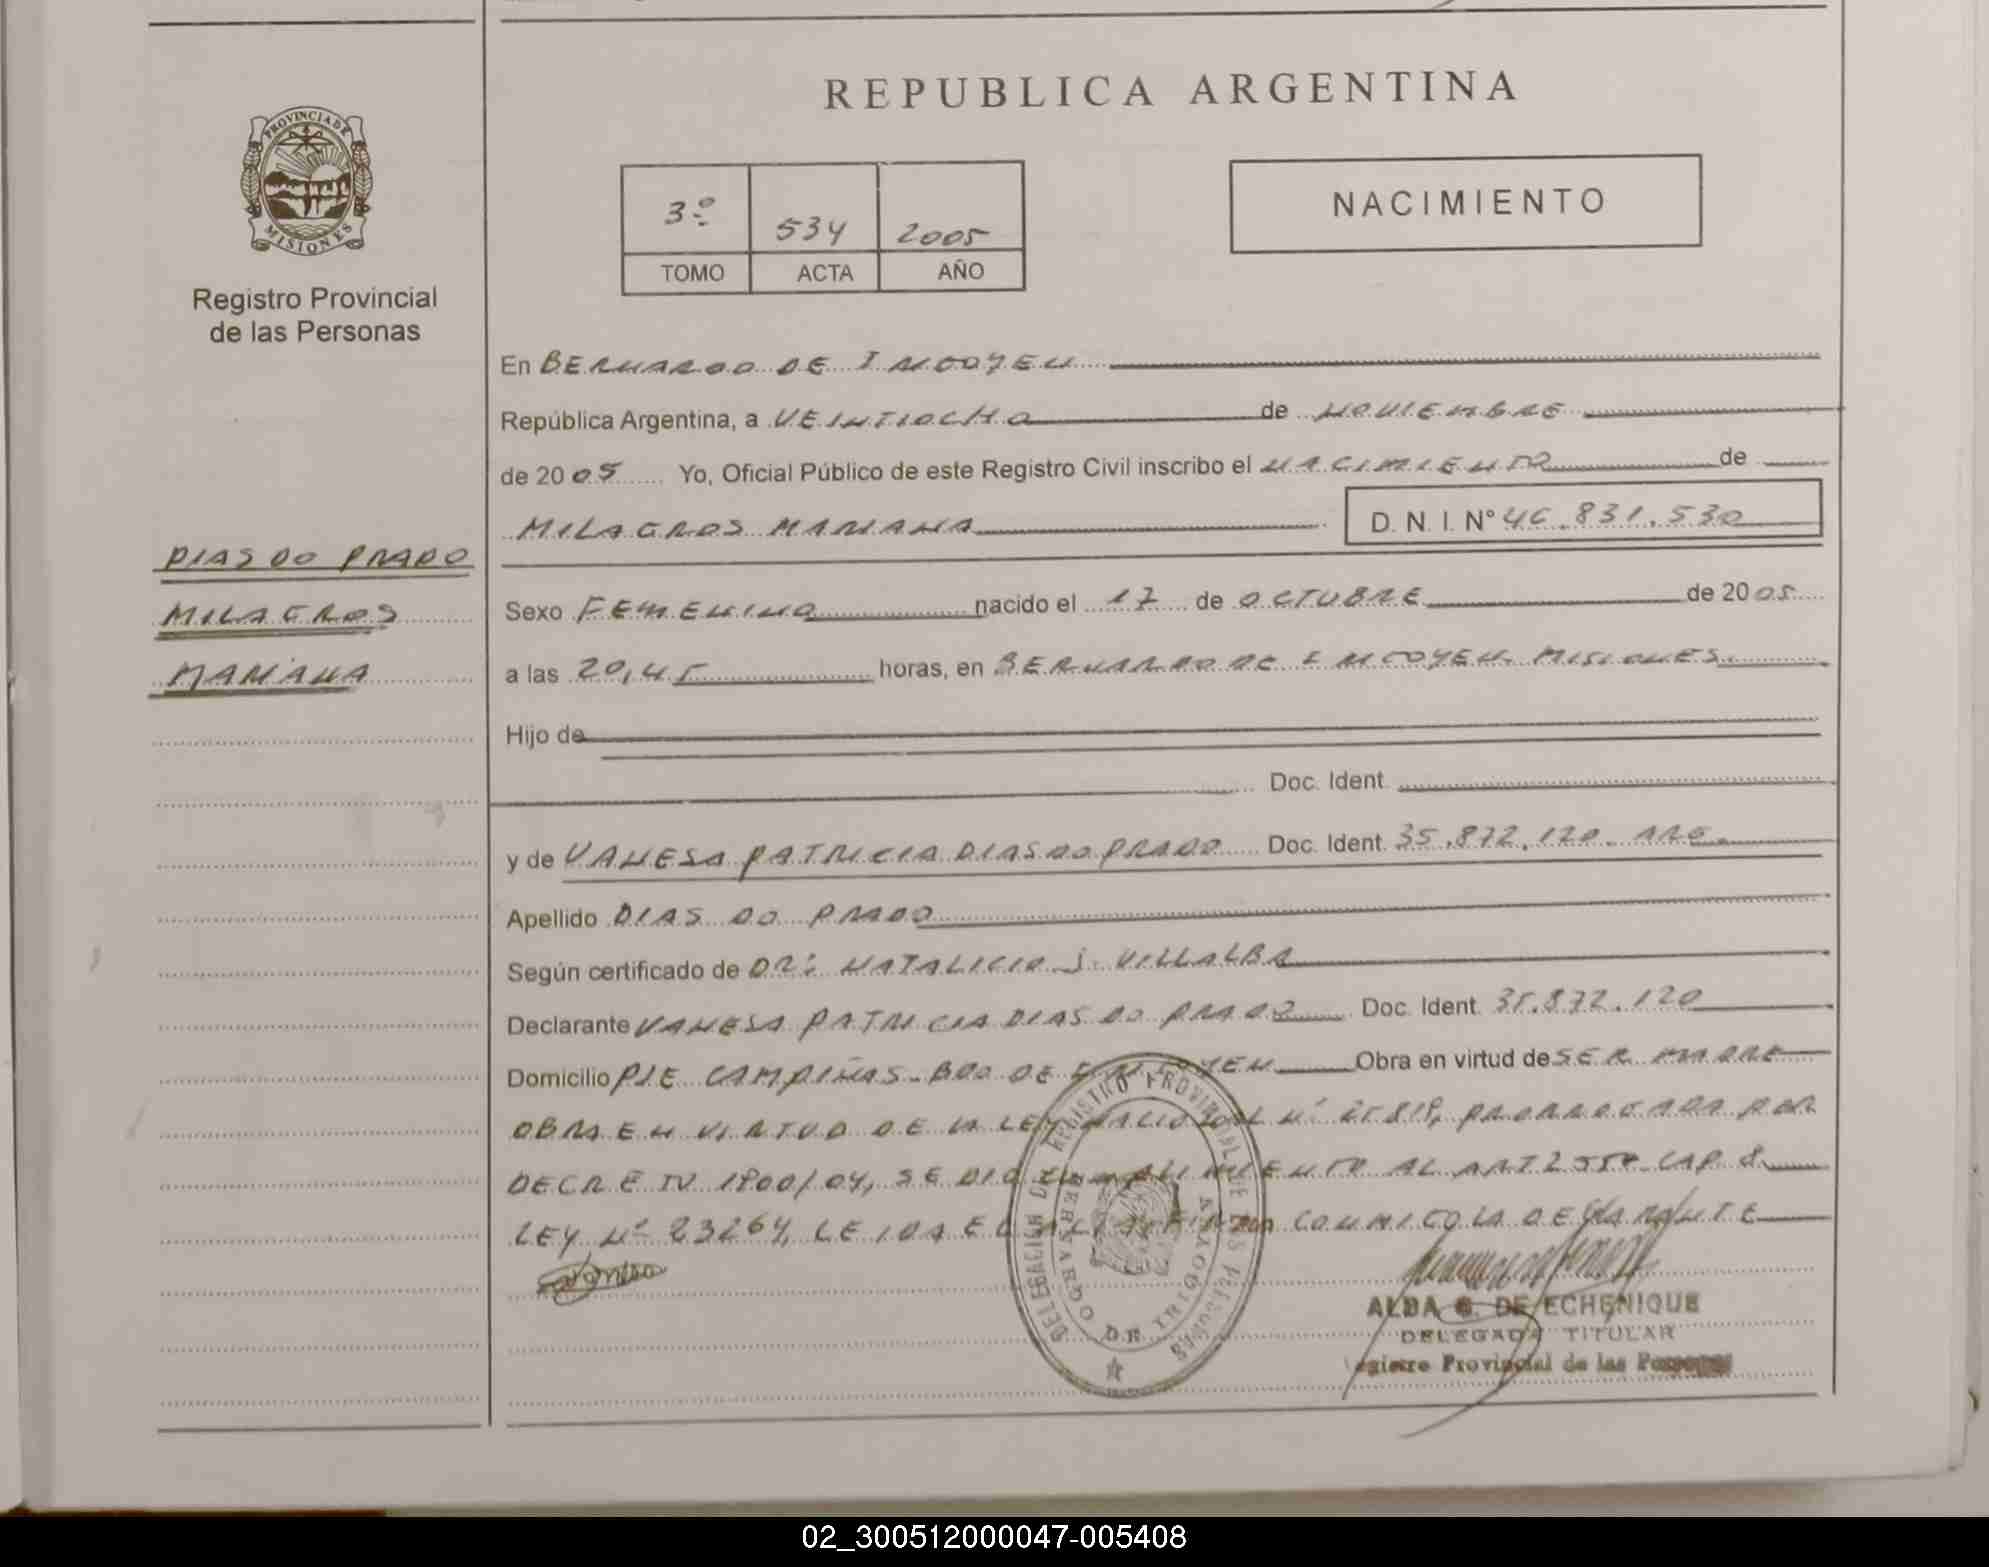 REPUBLICA ARGENTINA
PROVINCIA DE
MISIONES
Registro Provincial
de las Personas
3º 534 2005
TOMO ACTA AÑO
NACIMIENTO
En BERNARDO DE IRIGOYEN
República Argentina, a VEINTIOCHO de NOVIEMBRE
de 2005 Yo, Oficial Público de este Registro Civil inscribo el NACIMIENTO de
MILAGROS MARIANA D. N. I. N° 46.831.530
DIAS DO PRADO
MILAGROS
MARIANA
Sexo FEMENINO nacido el 17 de OCTUBRE de 2005
a las 20,45 horas, en BERNARDO DE IRIGOYEN. MISIONES.
Hijo de
Doc. Ident.
y de VANESA PATRICIA DIAS DO PRADO Doc. Ident. 35.872.120. ARG.
Apellido DIAS DO PRADO
Según certificado de DR: NATALICIO J. VILLALBA
Declarante VANESA PATRICIA DIAS DO PRADO Doc. Ident. 35.872.120
Domicilio PJE CAMPIÑAS. BDO DE IRIGOYEN Obra en virtud de SER MADRE
OBRA EN VIRTUD DE LA LEY NACIONAL Nº 25819, PRORROGADA POR
DECRETO 1800/04, SE DIO CUMPLIMIENTO AL ART 255º CAP. 8
LEY Nº 23264, LEIDA EL ACTA FIRMA CONMIGO LA DECLARANTE
DELEGACION DE REGISTRO PROVINCIAL DE LAS PERSONAS
BERNARDO DE IRIGOYEN
ALBA G. DE ECHENIQUE
DELEGADA TITULAR
Registro Provincial de las Personas
02_300512000047-005408